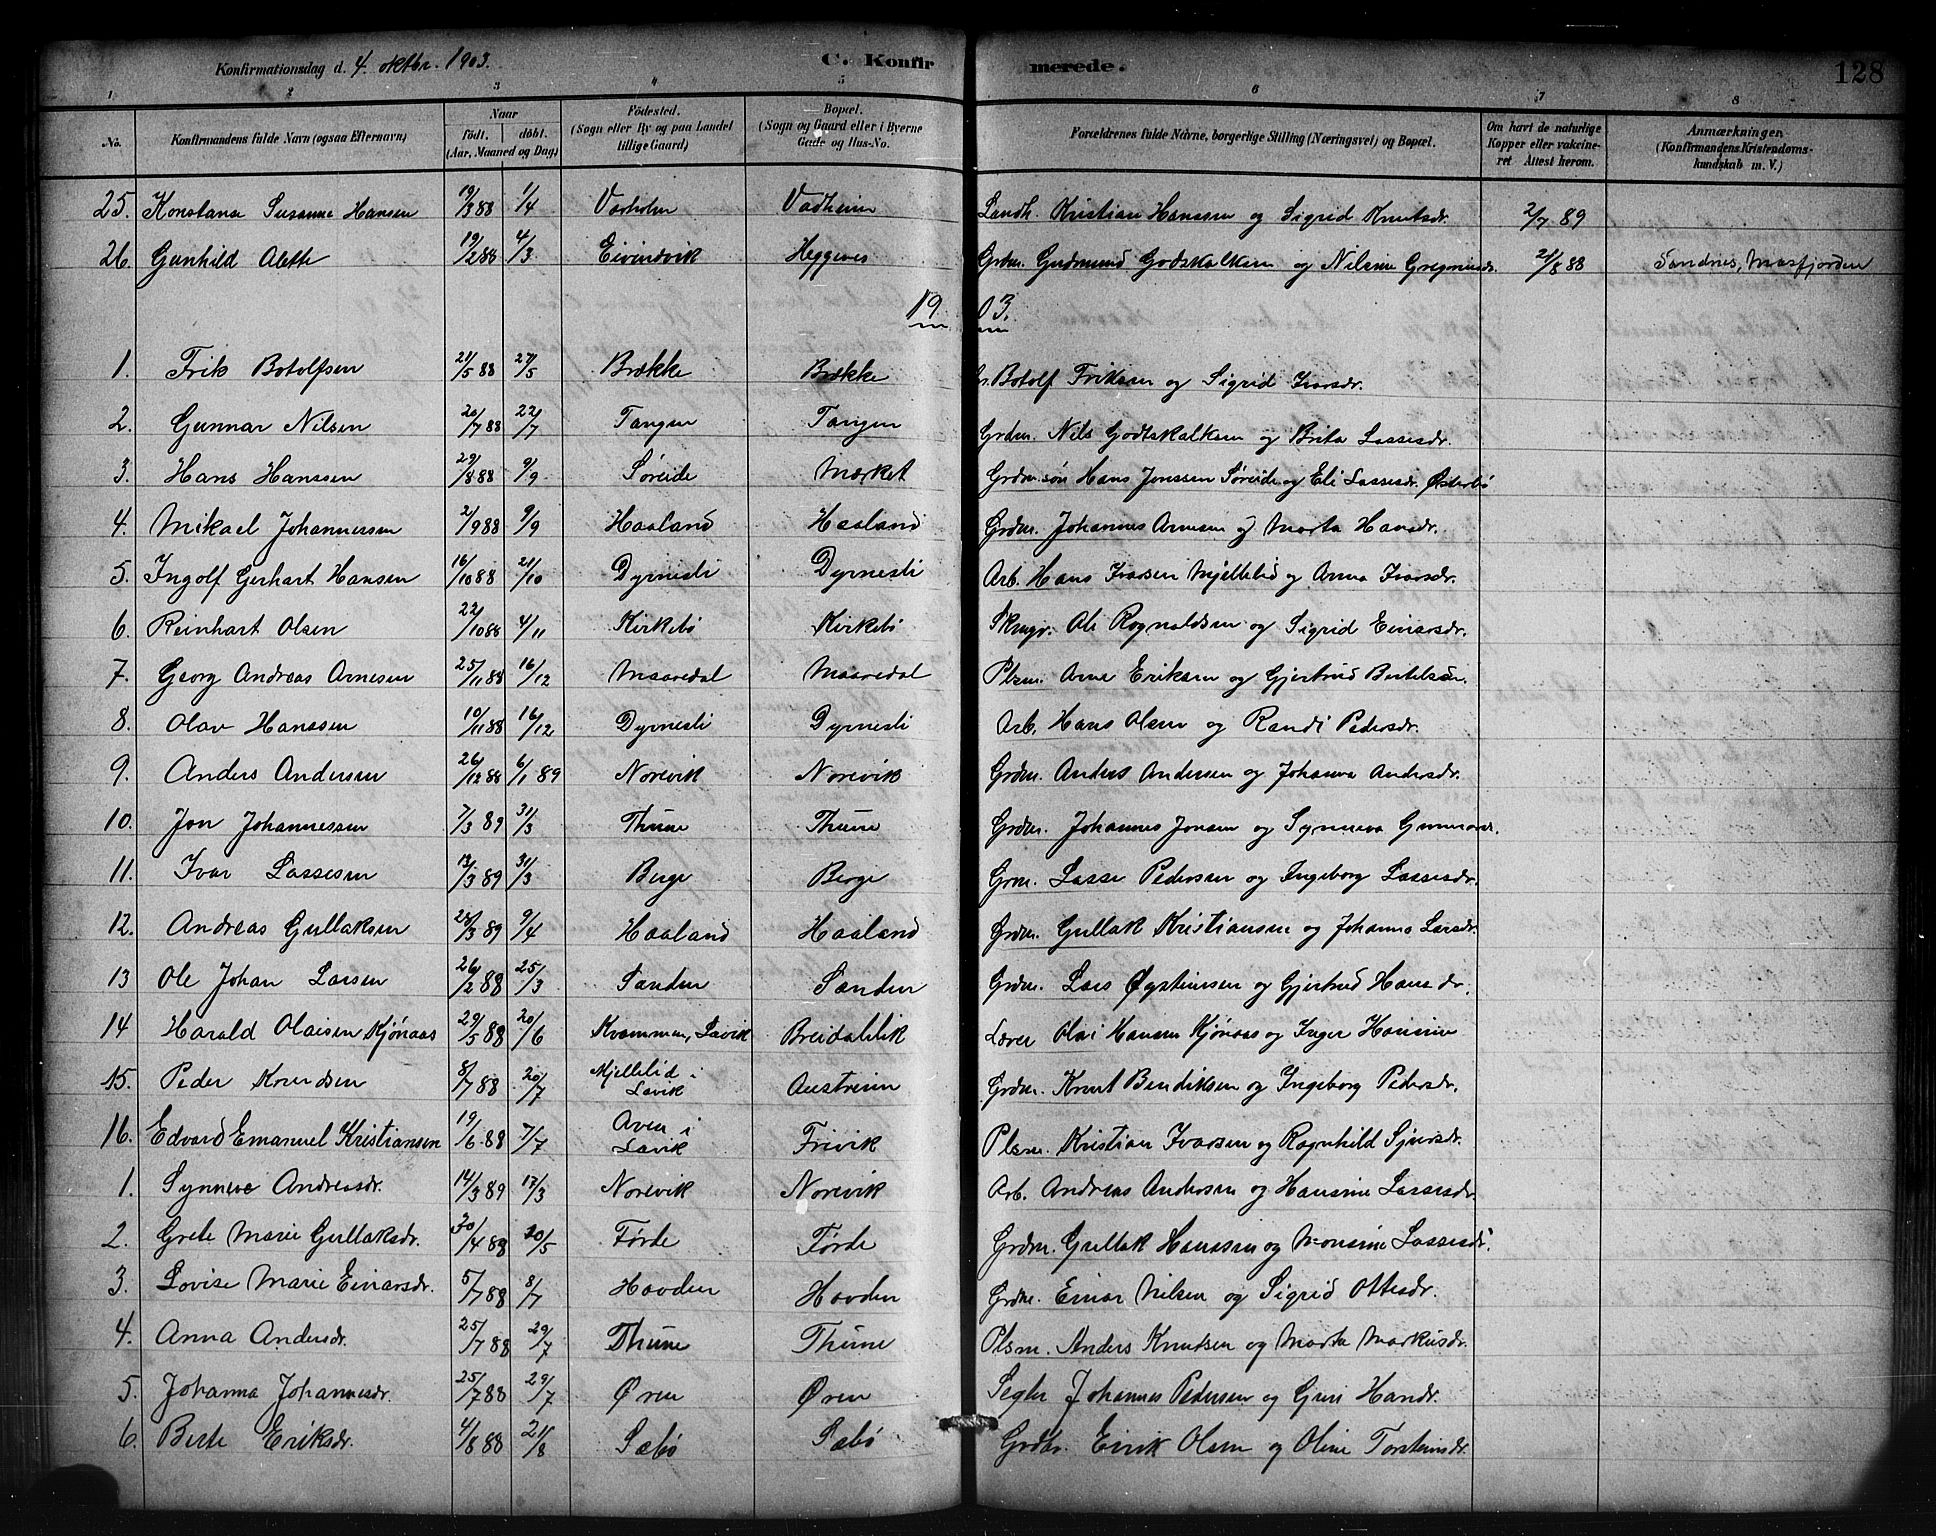 Konfirmationsdag d. 4 oktbr. 1903. C. Konfir merede. 128
1 2 3 4 5 6 7 8
No. Konfirmandens fulde Navn (ogsaa Efternavn) Naar födt. döbt. (Aar, Maaned og Dag) Födested. (Sogn eller By og paa Landet tillige Gaard) Bopæl. (Sogn og Gaard eller i Byerne Gade og Hus-No. Forældrenes fulde Navne, borgerlige Stilling (Næringsvei) og Bopæl. Om havt de naturlige Kopper eller vakcineret Attest herom. Anmærkninger. (Konfirmandens Kristendomskundskab m. V.)
25. Konstanse Susanne Hansen 19/3 88 1/4 Varholm Vadheim Landh. Kristian Hanssen og Sigrid Knutsdr. 2/7 89
26. Gunhild Alette 19/2 88 4/3 Eivindvik Heggenes Grdm. Gudmund Godskalksen og Nilsine 21/8 88 Sandnes, Masfjorden
19 03.
1. Erik Botolfsen 21/5 88 27/5 Brække Brække Botolf Eriksen og Sigrid Ivarsdr.
2. Gunnar Nilsen 20/7 88 22/7 Tangen Tangen Grdm. Nils Godtskalksen og Brita Lassesdr.
3. Hans Hanssen 29/8 88 9/9 Søreide Mærket Grdm. søn Hans Jenssen Søreide og Eli Lassesdr. Østerbø
4. Mikael Johannessen 2/9 88 9/9 Haaland Haaland Grdm. Johannes Arnesen og Marta Hansdr.
5. Ingolf Gerhart Hansen 16/10 88 21/10 Dyrnesli Dyrnesli Arb. Hans Ivarsen Mjellelid og Anna Ivarsdr.
6. Reinhart Olsen 22/10 88 4/11 Kirkebø Kirkebø Ole Ragnaldsen og Sigrid Einarsdr.
7. Georg Andreas Arnesen 25/11 88 16/12 Maaredal Maaredal Plsm. Arne Eriksen og Gjertrud Bertelsdr.
8. Olav Hanssen 10/11 88 16/12 Dyrnesli Dyrnesli Arb. Hans Olsen og Randi Pedersdr.
9. Anders Andersen 26/12 88 6/1 89 Norevik Norevik Grdm. Anders Andersen og Johanna Andersdr.
10. Jon Johannessen 7/3 89 31/3 Thune Thune Grdm. Johannes Jonsen og Synneva Gunnarsdr.
11. Ivar Lassesen 13/3 89 31/3 Berge Berge Grm. Lasse Pederssen og Ingeborg Lassesdr.
12. Andreas Gullaksen 24/3 89 9/4 Haaland Haaland Grdm. Gullak Kristiansen og Johanna Larsdr.
13 Ole Johan Larsen 26/2 88 25/3 Sanden Sanden Grdm. Lars Øysteinsen og Gjertrud Hansdr.
14 Harald Olaisen Kjönaas 29/5 88 20/6 Kvammen, Lavik Breidablik Lærer Olai Hansen Kjönaas og Inger Hansine
15. Peder Knudsen 8/7 88 20/7 Mjellelid i Lavik Austreim Grdm. Knut Bendiksen og Ingeborg Pedersdr.
16. Edvard Emanuel Kristiansen 19/6 88 7/7 Aven i Lavik Frivik Plsm. Kristian Ivarsen og Ragnhild Sjursdr.
1. Synneve Andreasdr. 14/3 89 17/3 Norevik Norevik Arb. Andreas Andersen og Hansine Lassesdr.
2. Grete Marie Gullaksdr. 30/4 88 20/5 Førde Førde Grdm. Gullak Hanssen og Monsine Lassesdr.
3. Lovise Marie Einarsdr. 5/7 88 8/7 Hovden Hovden Grdm. Einar Nilsen og Sigrid Ottesdr.
4. Anna Andersdr. 25/7 88 29/7 Thune Thune Plsm. Anders Knutsen og Marta Markusdr.
5. Johanna Johannesdr. 25/7 88 29/7 Øren Øren Johannes Pedersen og Guri Hansdr.
6. Berte Eriksdr. 4/8 88 21/8 Sæbø Sæbø Grdbr. Eirik Olsen og Oline Torsteinsdr.